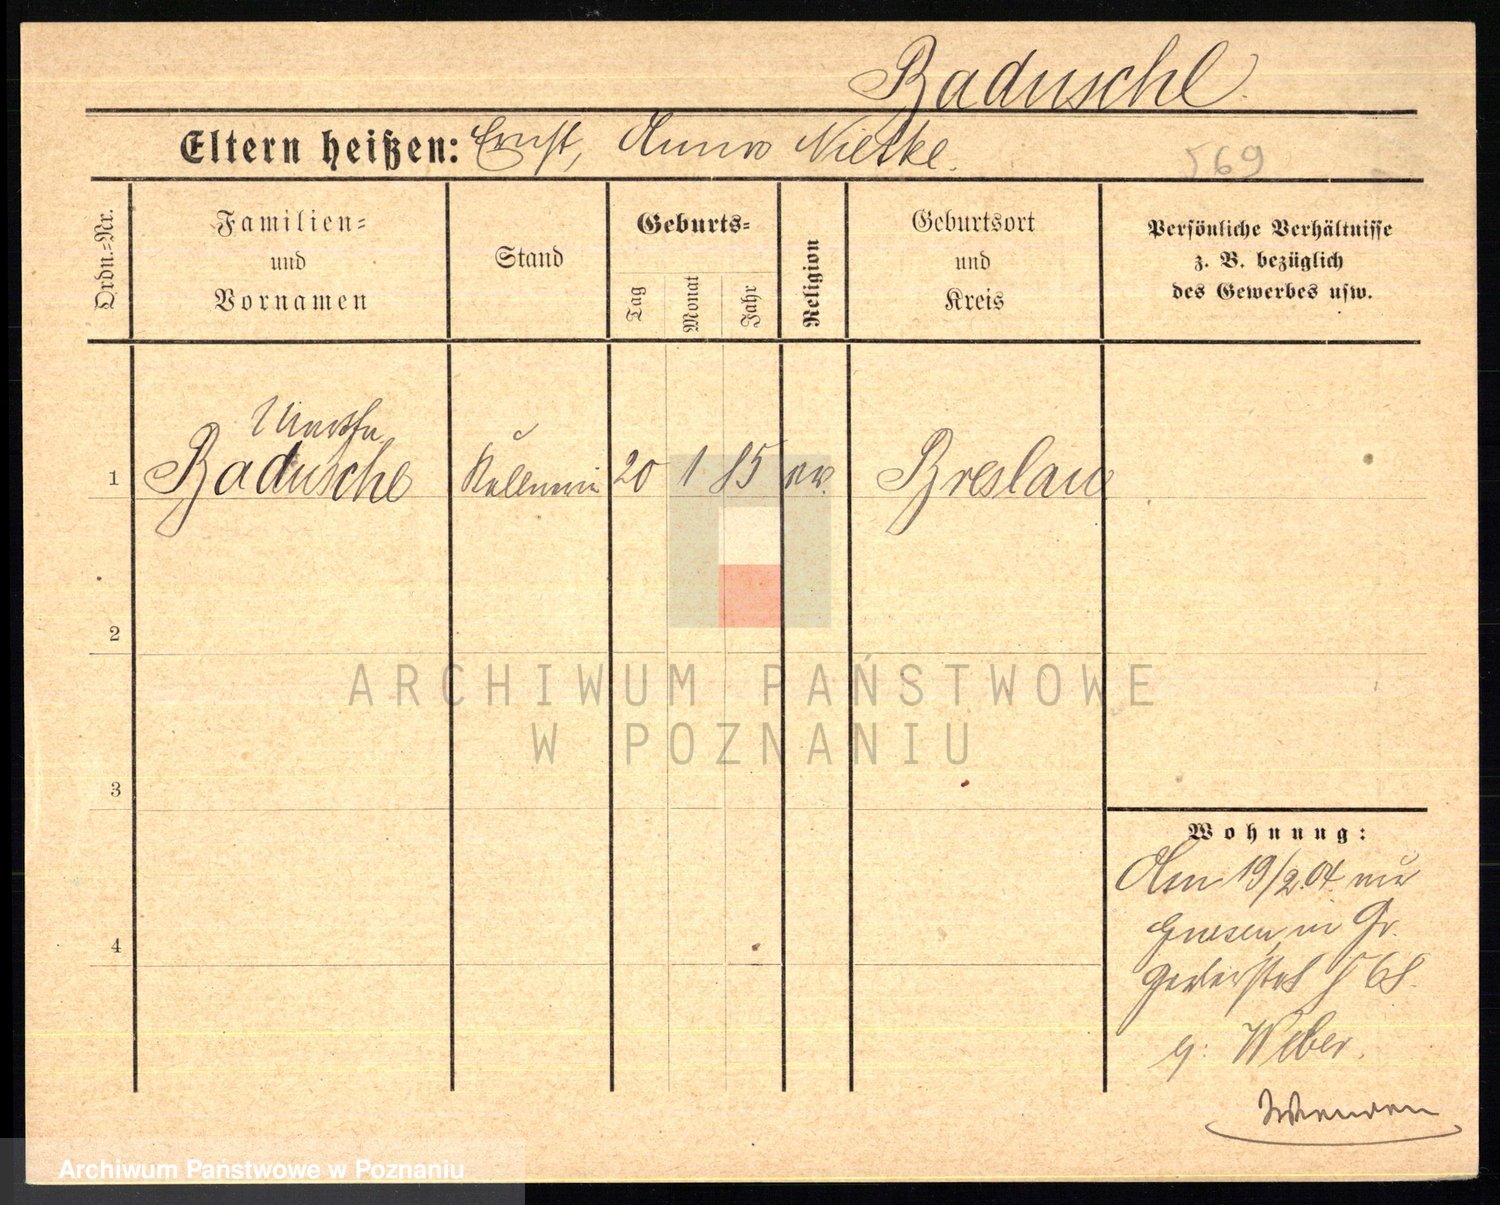 Baduschl
Eltern heißen: Ernst, Anna Nietke.
569
Ordn.=Nr.
Familien=
und
Vornamen
Stand
Geburts=
Tag
Monat
Jahr
Religion
Geburtsort
und
Kreis
Persönliche Verhältnisse
z. B. bezüglich
des Gewerbes usw.
Martha
1 Badusche Kellnerin 20 1 85 ev. Breslau
2
ARCHIWUM PAŃSTWOWE
W POZNANIU
3
Wohnung:
Am 19/2.04. 
Gnesen, in Gr.
68.
Weber.
4
Wenden
Archiwum Państwowe w Poznaniu